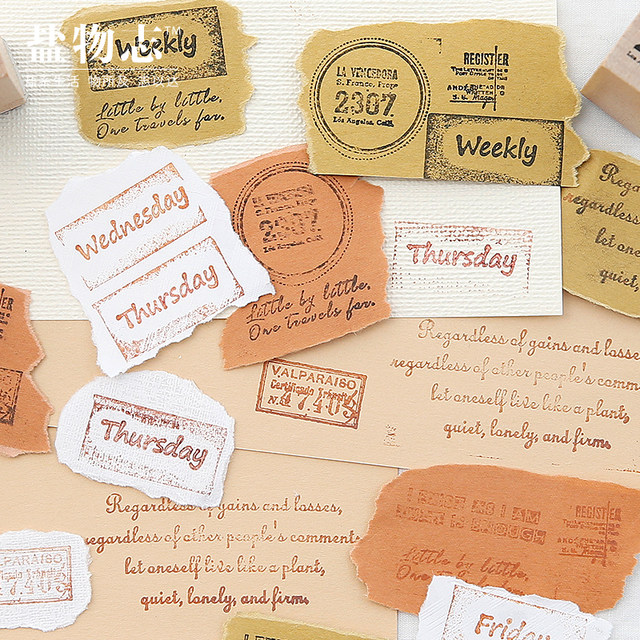 盐物志
Weekly
Little by little,
One travels far.
LA VENCEDORA
S. Franco, Prop
2307
Los Angeles, Cal.
REGISTER
Weekly
Wednesday
Thursday
2307
Little by little,
One travels far.
Thursday
Rega
regardless
let one
quiet,
Regardless of gains and losse
regardless of other people's comm
let oneself live like a plant,
quiet, lonely, and firm.
VALPARAISO
Thursday
Regardless of gains and losses,
egardless of other people's comments
let oneself live like a plant,
quiet, lonely, and firm.
I KNOW AS I AM
REGISTER
Little by little,
One
Friday